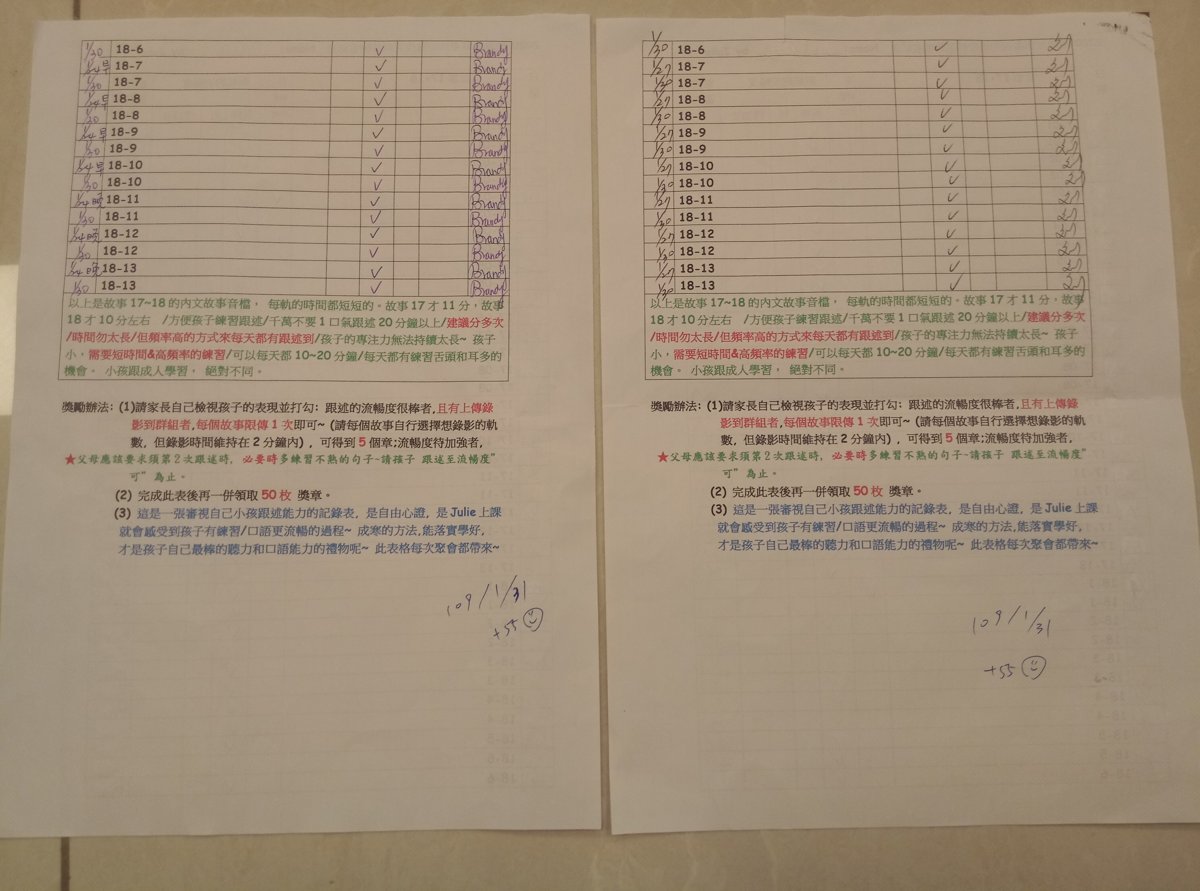 1/30 18-6 ✓ Brandy
1/24早 18-7 ✓ Brandy
1/30 18-7 ✓ Brandy
1/24早 18-8 ✓ Brandy
1/30 18-8 ✓ Brandy
1/24早 18-9 ✓ Brandy
1/30 18-9 ✓ Brandy
1/24早 18-10 ✓ Brandy
1/30 18-10 ✓ Brandy
1/24晚 18-11 ✓ Brandy
1/30 18-11 ✓ Brandy
1/24晚 18-12 ✓ Brandy
1/30 18-12 ✓ Brandy
1/24晚 18-13 ✓ Brandy
1/30 18-13 ✓ Brandy
以上是故事 17~18 的內文故事音檔， 每軌的時間都短短的。故事 17 才 11 分，故事
18 才 10 分左右 /方便孩子練習跟述/千萬不要 1 口氣跟述 20 分鐘以上/建議分多次
/時間勿太長/但頻率高的方式來每天都有跟述到/孩子的專注力無法持續太長~ 孩子
小，需要短時間&高頻率的練習/可以每天都 10~20 分鐘/每天都有練習舌頭和耳多的
機會。 小孩跟成人學習， 絕對不同。
獎勵辦法: (1)請家長自己檢視孩子的表現並打勾: 跟述的流暢度很棒者,且有上傳錄
影到群組者,每個故事限傳 1 次即可~ (請每個故事自行選擇想錄影的軌
數，但錄影時間維持在 2 分鐘內) , 可得到 5 個章;流暢度待加強者,
★父母應該要求須第 2 次跟述時, 必要時多練習不熟的句子~請孩子 跟述至流暢度"
可" 為止。
(2) 完成此表後再一併領取 50 枚 獎章。
(3) 這是一張審視自己小孩跟述能力的記錄表, 是自由心證, 是 Julie 上課
就會感受到孩子有練習/口語更流暢的過程~ 成寒的方法,能落實學好,
才是孩子自己最棒的聽力和口語能力的禮物呢~ 此表格每次聚會都帶來~
109/1/31
+55
1/30 18-6 ✓
1/27 18-7 ✓
1/30 18-7 ✓
1/27 18-8 ✓
1/30 18-8 ✓
1/27 18-9 ✓
1/30 18-9 ✓
1/27 18-10 ✓
1/30 18-10 ✓
1/27 18-11 ✓
1/30 18-11 ✓
1/27 18-12 ✓
1/30 18-12 ✓
1/27 18-13 ✓
1/30 18-13 ✓
以上是故事 17~18 的內文故事音檔， 每軌的時間都短短的。故事 17 才 11 分，故事
18 才 10 分左右 /方便孩子練習跟述/千萬不要 1 口氣跟述 20 分鐘以上/建議分多次
/時間勿太長/但頻率高的方式來每天都有跟述到/孩子的專注力無法持續太長~ 孩子
小，需要短時間&高頻率的練習/可以每天都 10~20 分鐘/每天都有練習舌頭和耳多的
機會。 小孩跟成人學習， 絕對不同。
獎勵辦法: (1)請家長自己檢視孩子的表現並打勾: 跟述的流暢度很棒者,且有上傳錄
影到群組者,每個故事限傳 1 次即可~ (請每個故事自行選擇想錄影的軌
數，但錄影時間維持在 2 分鐘內) , 可得到 5 個章;流暢度待加強者,
★父母應該要求須第 2 次跟述時, 必要時多練習不熟的句子~請孩子 跟述至流暢度"
可" 為止。
(2) 完成此表後再一併領取 50 枚 獎章。
(3) 這是一張審視自己小孩跟述能力的記錄表, 是自由心證, 是 Julie 上課
就會感受到孩子有練習/口語更流暢的過程~ 成寒的方法,能落實學好,
才是孩子自己最棒的聽力和口語能力的禮物呢~ 此表格每次聚會都帶來~
109/1/31
+55